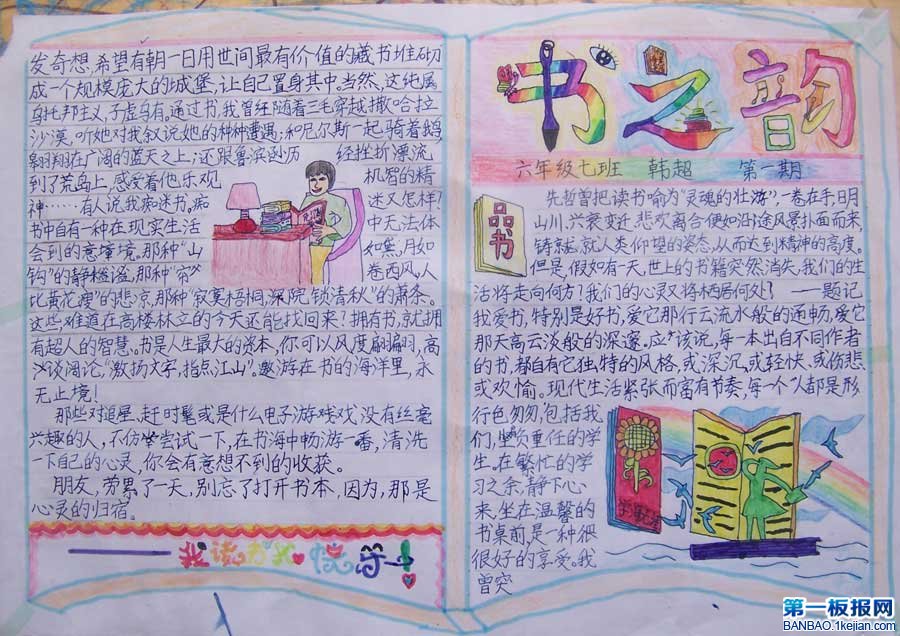 书之韵
六年级七班 韩超 第一期
品书
先哲曾把读书喻为“灵魂的壮游”,一卷在手,日月
山川,兴衰变迁,悲欢离合便如沿途风景扑面而来,
铸就人类仰望的姿态,从而达到精神的高度。
但是,假如有一天,世上的书籍突然消失,我们的生
活将走向何方?我们的心灵又将栖居何处? ——题记
我爱书,特别是好书,爱它那行云流水般的通畅,爱它
那天高云淡般的深邃。应该说,每一本出自不同作者
的书,都自有它独特的风格,或深沉,或轻快、或伤悲
或欢愉。现代生活紧张而富有节奏,每一个人都是形
行色匆匆,包括我
们,负重任的学
生。在繁忙的学
习之余,静下心
来,坐在温馨的
书桌前,是一种很
很好的享受。我
曾突
发奇想,希望有朝一日用世间最有价值的藏书堆砌
成一个规模庞大的城堡,让自己置身其中。当然,这纯属
乌托邦主义,子虚乌有,通过书,我曾经随着三毛穿越撒哈拉
沙漠,听她对我叙说她的种种遭遇;和尼尔斯一起骑着鹅,
翱翔在广阔的蓝天之上;还跟鲁滨逊历 经挫折漂流
到了荒岛上,感受着他乐观 机智的精
神……有人说我痴迷书。痴 迷又怎样?
书中自有一种在现实生活 中无法体
会到的意境。那种“山 如黛,月如
钩”的静谧,那种“帘 卷西风,人
比黄花瘦”的悲凉,那种“寂寞梧桐深院,锁清秋”的萧条。
这些难道在高楼林立的今天还能找回来?拥有书,就拥
有超人的智慧。书是人生最大的资本,你可以风度翩翩,高
谈阔论,“激扬文字,指点江山”。遨游在书的海洋里,永
无止境!
那些对追星、赶时髦或是什么电子游戏戏没有丝毫
兴趣的人,不仿尝试一下,在书海中畅游一番,清洗
一下自己的心灵,你会有意想不到的收获。
朋友,劳累了一天,别忘了打开书本,因为,那是
心灵的归宿。
我读书我快乐
第一板报网
BANBAO.1kejian.com